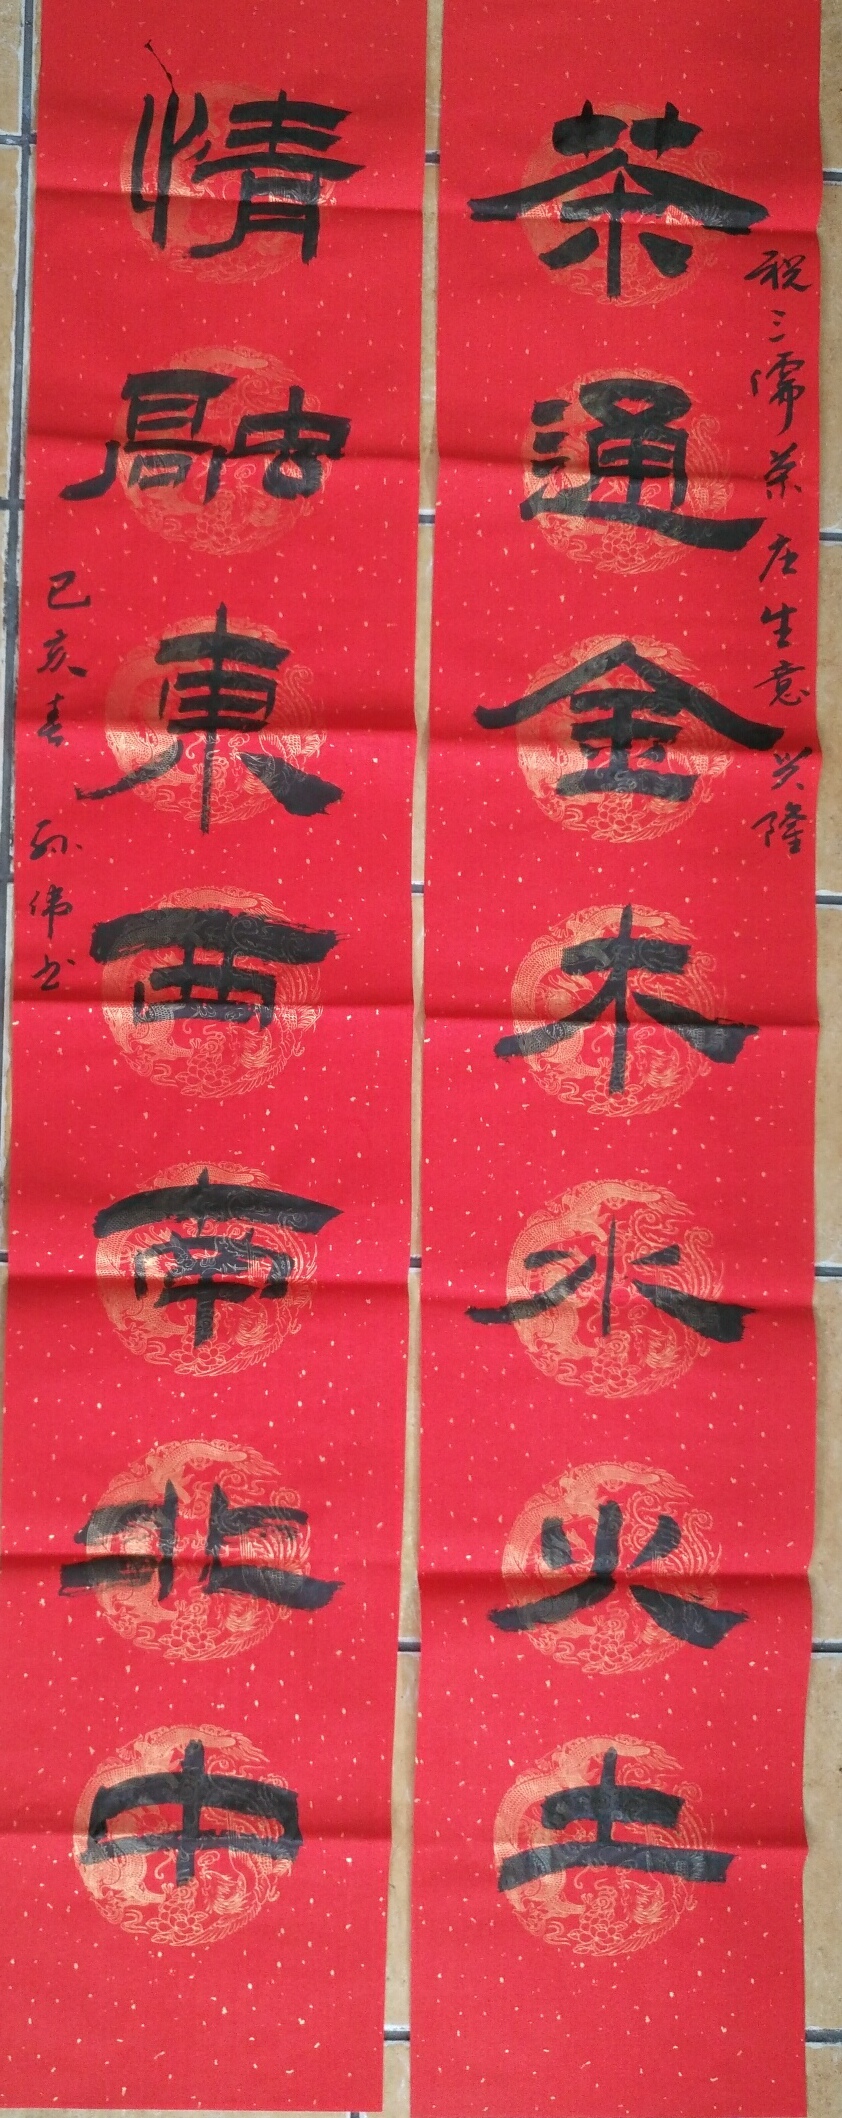 祝三儒茶庄生意兴隆
茶通金木水火土
情融東西南北中
己亥春 孙伟书